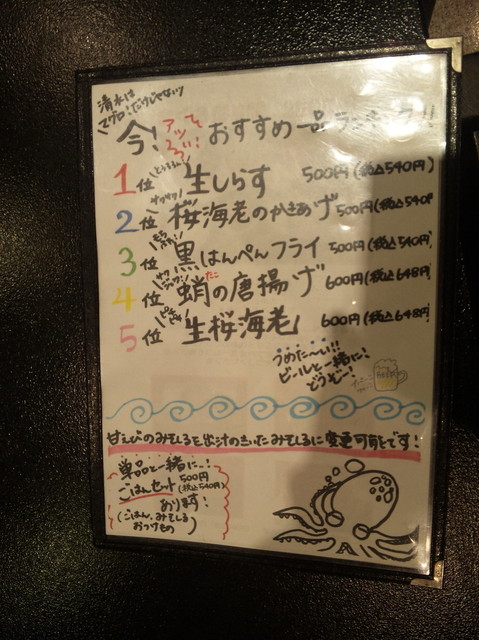 清水は
マグロだけじゃない
今!アツい!おすすめ一品ランキング!!
1位 とぅるるん 生しらす 500円(税込540円)
2位 サクサク 桜海老のかきあげ 500円(税込540円
3位 黒はんぺんフライ 500円(税込540円)
4位 蛸の唐揚げ 600円(税込648円)
たこ
5位 生桜海老 600円(税込648円)
うめた~い!!!
ビールと一緒に!
どうぞー!
甘えびのみそしるを出汁のきいたみそしるに変更可能です!
単品と一緒に!
ごはんセット 500円(税込540円)
あります!
(ごはん、みそしる
おつけもの)